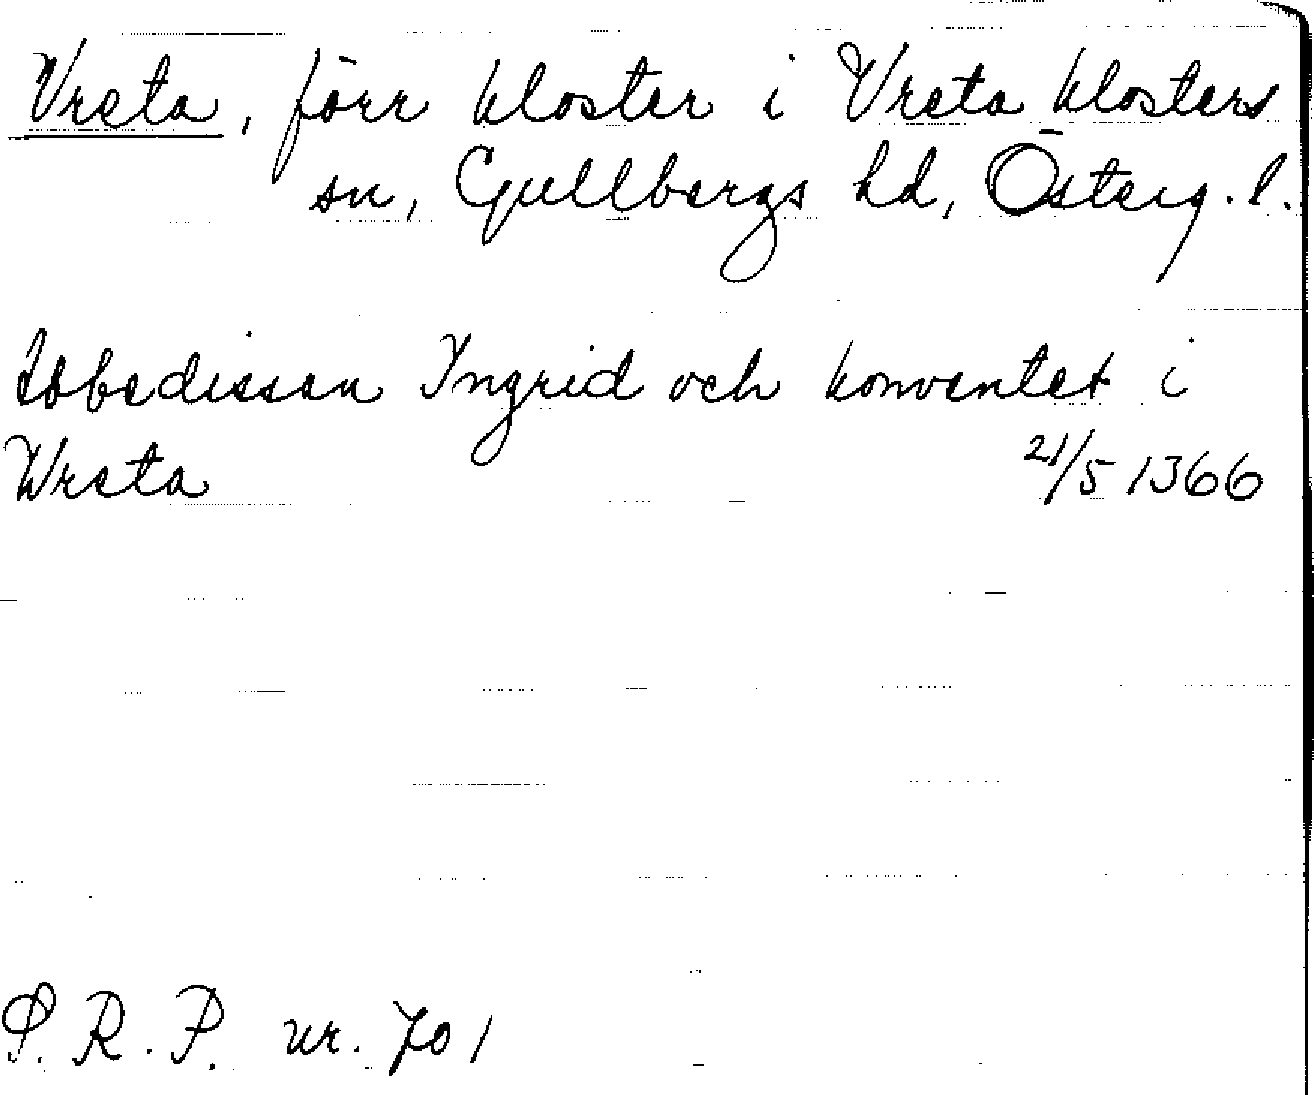 Vreta, förr kloster i Vreta klosters
sn, Gullbergs hd, Österg. l.
Abbedissan Ingrid och konventet i
Wreta 21/5 1366
S. R. P. nr. 701